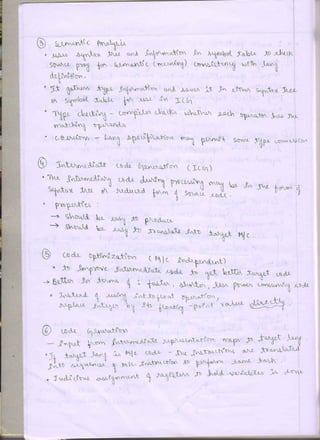 ③ Semantic Analysis
• uses syntax tree and information in symbol table to check
source prog for semantic (meaning) consistency with lang
definition.
• It gathers type information and saves it in either syntax tree
or symbol table for use in ICG
• Type checking - compiler checks whether each operator has the
matching operands
• coersions - Lang specification may permit some type conversion
④ Intermediate code Generation (ICG)
• The Intermediary code during processing may be in the form of
syntax tree or reduced form of source code.
• properties:
→ should be easy to produce
→ should be easy to translate into target M/c.
⑤ code optimization (M/c Independent)
• to improve intermediate code to get better target code
→ Better in terms of : faster, shorter, less power consuming code
• Instead of using int to float operation,
replace integer by its floating-point value directly
⑥ code generation
- Input from intermediate representation maps to target lang
• If target lang is M/c code - the instructions are translated
into sequence of M/c instruction to perform same task.
• Judicious assignment of registers to hold variables is done